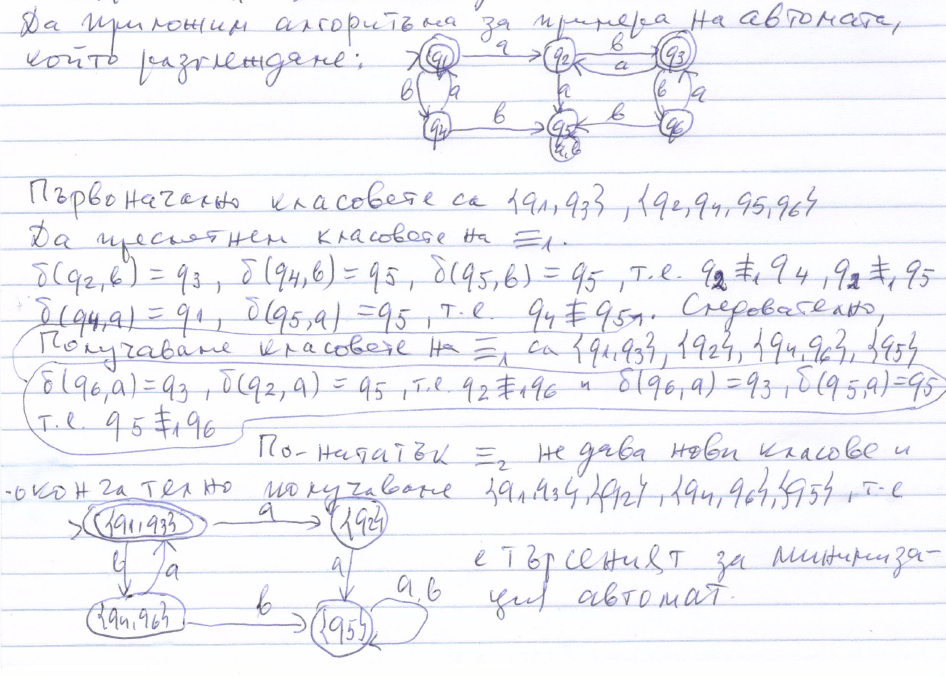 Да приложим алгоритъма за примера на автомата,
който разглеждаме:
q1 a q2 b a q3
b a a b a
q4 b q5 b q6
a,b
Първоначално класовете са {q1,q3}, {q2,q4,q5,q6}
Да пресметнем класовете на ≡1.
δ(q2,b) = q3, δ(q4,b) = q5, δ(q5,b) = q5, т.е. q2 ≢1 q4, q2 ≢1 q5
δ(q4,a) = q1, δ(q5,a) = q5, т.е. q4 ≢1 q5. Следователно,
Получаваме класовете на ≡1 са {q1,q3}, {q2}, {q4,q6}, {q5}
δ(q6,a) = q3, δ(q2,a) = q5, т.е. q2 ≢1 q6 и δ(q6,a) = q3, δ(q5,a) = q5
т.е. q5 ≢1 q6
По-нататък ≡2 не дава нови класове и
окончателно получаваме {q1,q3}, {q2}, {q4,q6}, {q5}, т.е
{q1,q3} a {q2}
b a a е търсеният за минимиза-
{q4,q6} b {q5} a,b ция автомат.